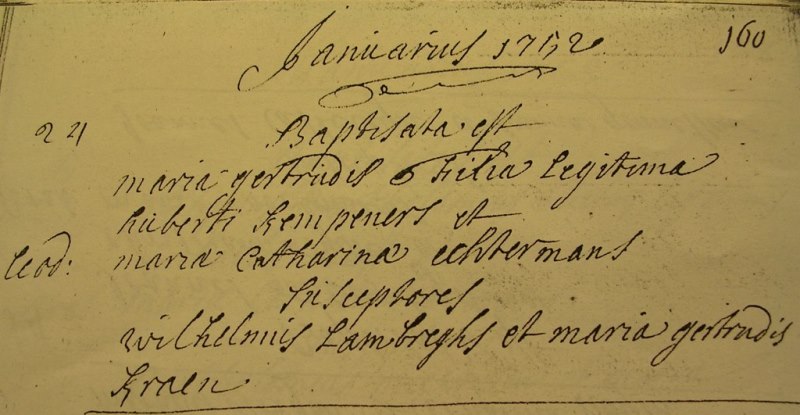 Januarius 1752 160
24 Baptisata est
maria gertrudis Filia Legitima
huberti Kempeners et
Leod: mariæ Catharinæ echtermans
Susceptores
wilhelmus Lambreghs et maria gertrudis
Kraen.